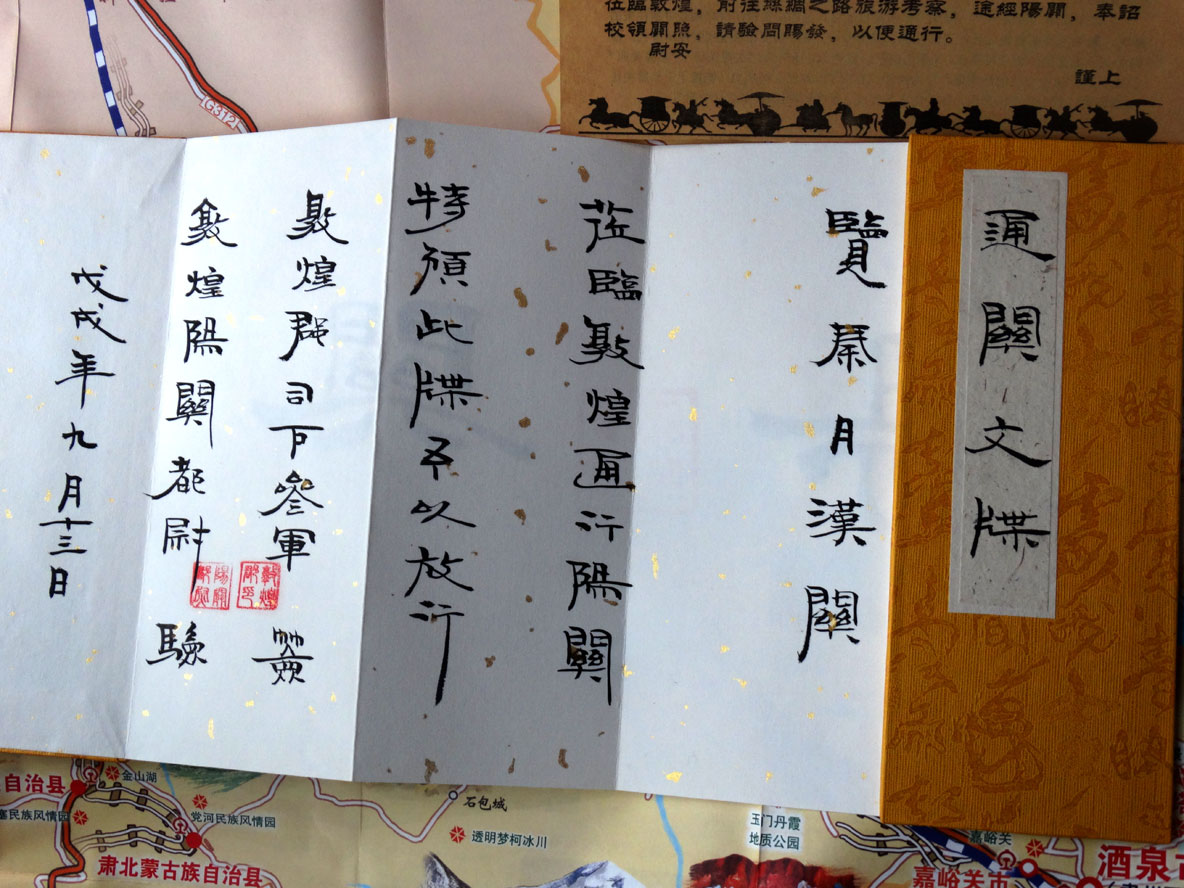 通關文牒
覽秦月漢關
蒞臨敦煌通行陽關
特頒此牒予以放行
敦煌郡司下參軍 簽
敦煌陽關都尉 驗
戊戌年九月十三日
敦煌郡印
蒞臨敦煌，前往絲綢之路旅游考察，途經陽關，奉詔
校領關照，請驗問賜發，以便通行。
尉安
謹上
G312
自治县
金山湖
党河民族风情园
民族风情园
肃北蒙古族自治县
石包城
透明梦柯冰川
玉门丹霞
地质公园
嘉峪关
嘉峪关市
酒泉市